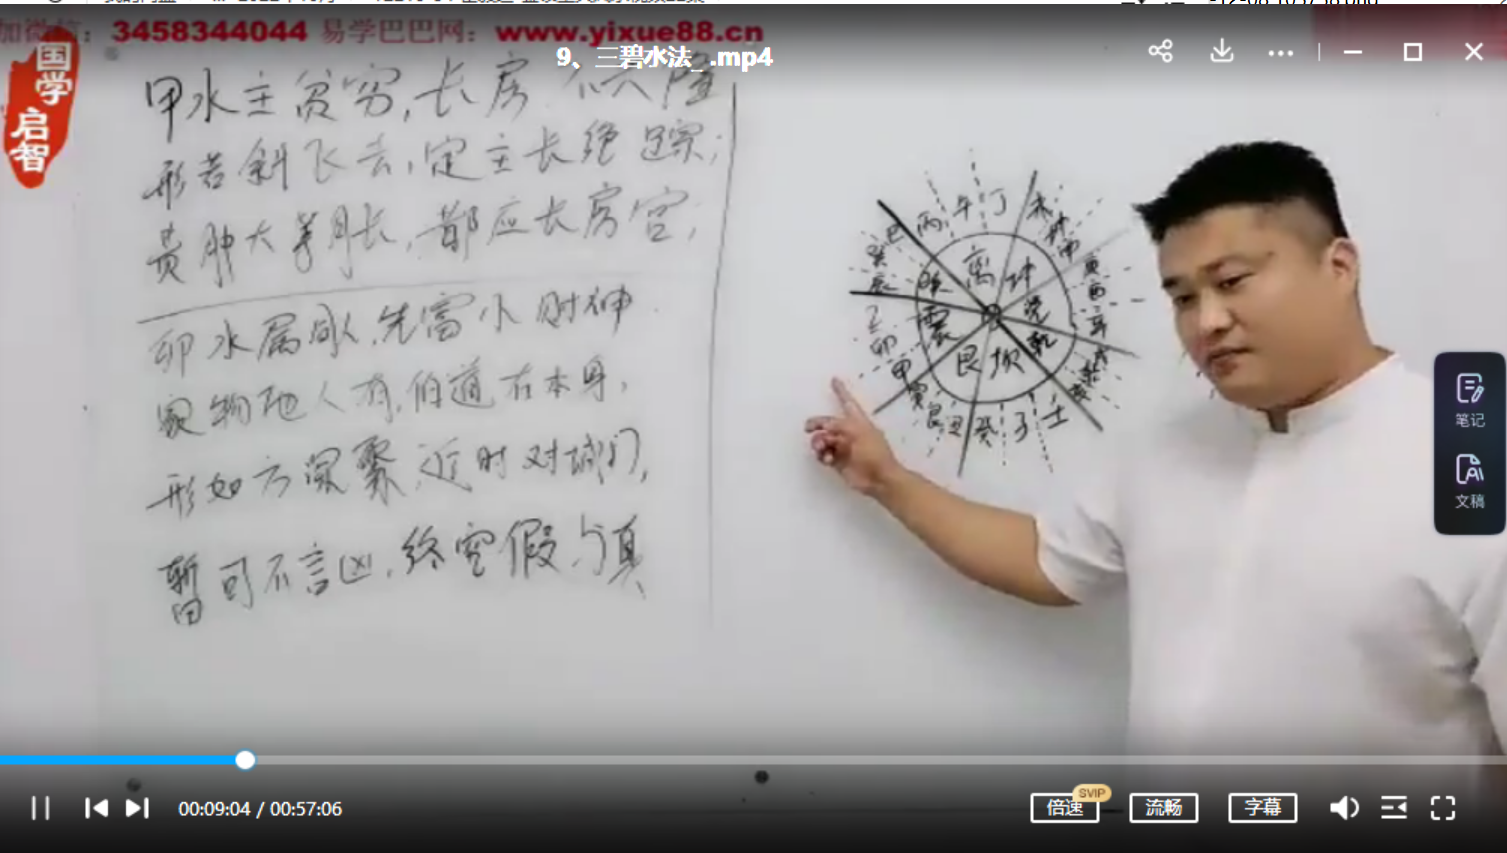 加微信：3458344044 易学巴巴网：www.yixue88.cn
9、三碧水法_.mp4
国学
启智
甲水主贫穷，长房不兴隆
形若斜飞去，定主长绝踪；
黄肿大算长，都应长房宫；
卯水属 先富小财神
家物他人有，伯道在本身，
形如方深 近时对城门，
暂可不言凶，终究假与真
巳 丙 午 丁 未 坤 申
巽 离 坤 庚
辰 巽 兑 酉
乙 震 乾 辛
卯 艮 坎 戌
甲 乾
寅 艮 丑 癸 子 壬 亥
笔记
文稿
00:09:04 / 00:57:06
SVIP
倍速
流畅
字幕